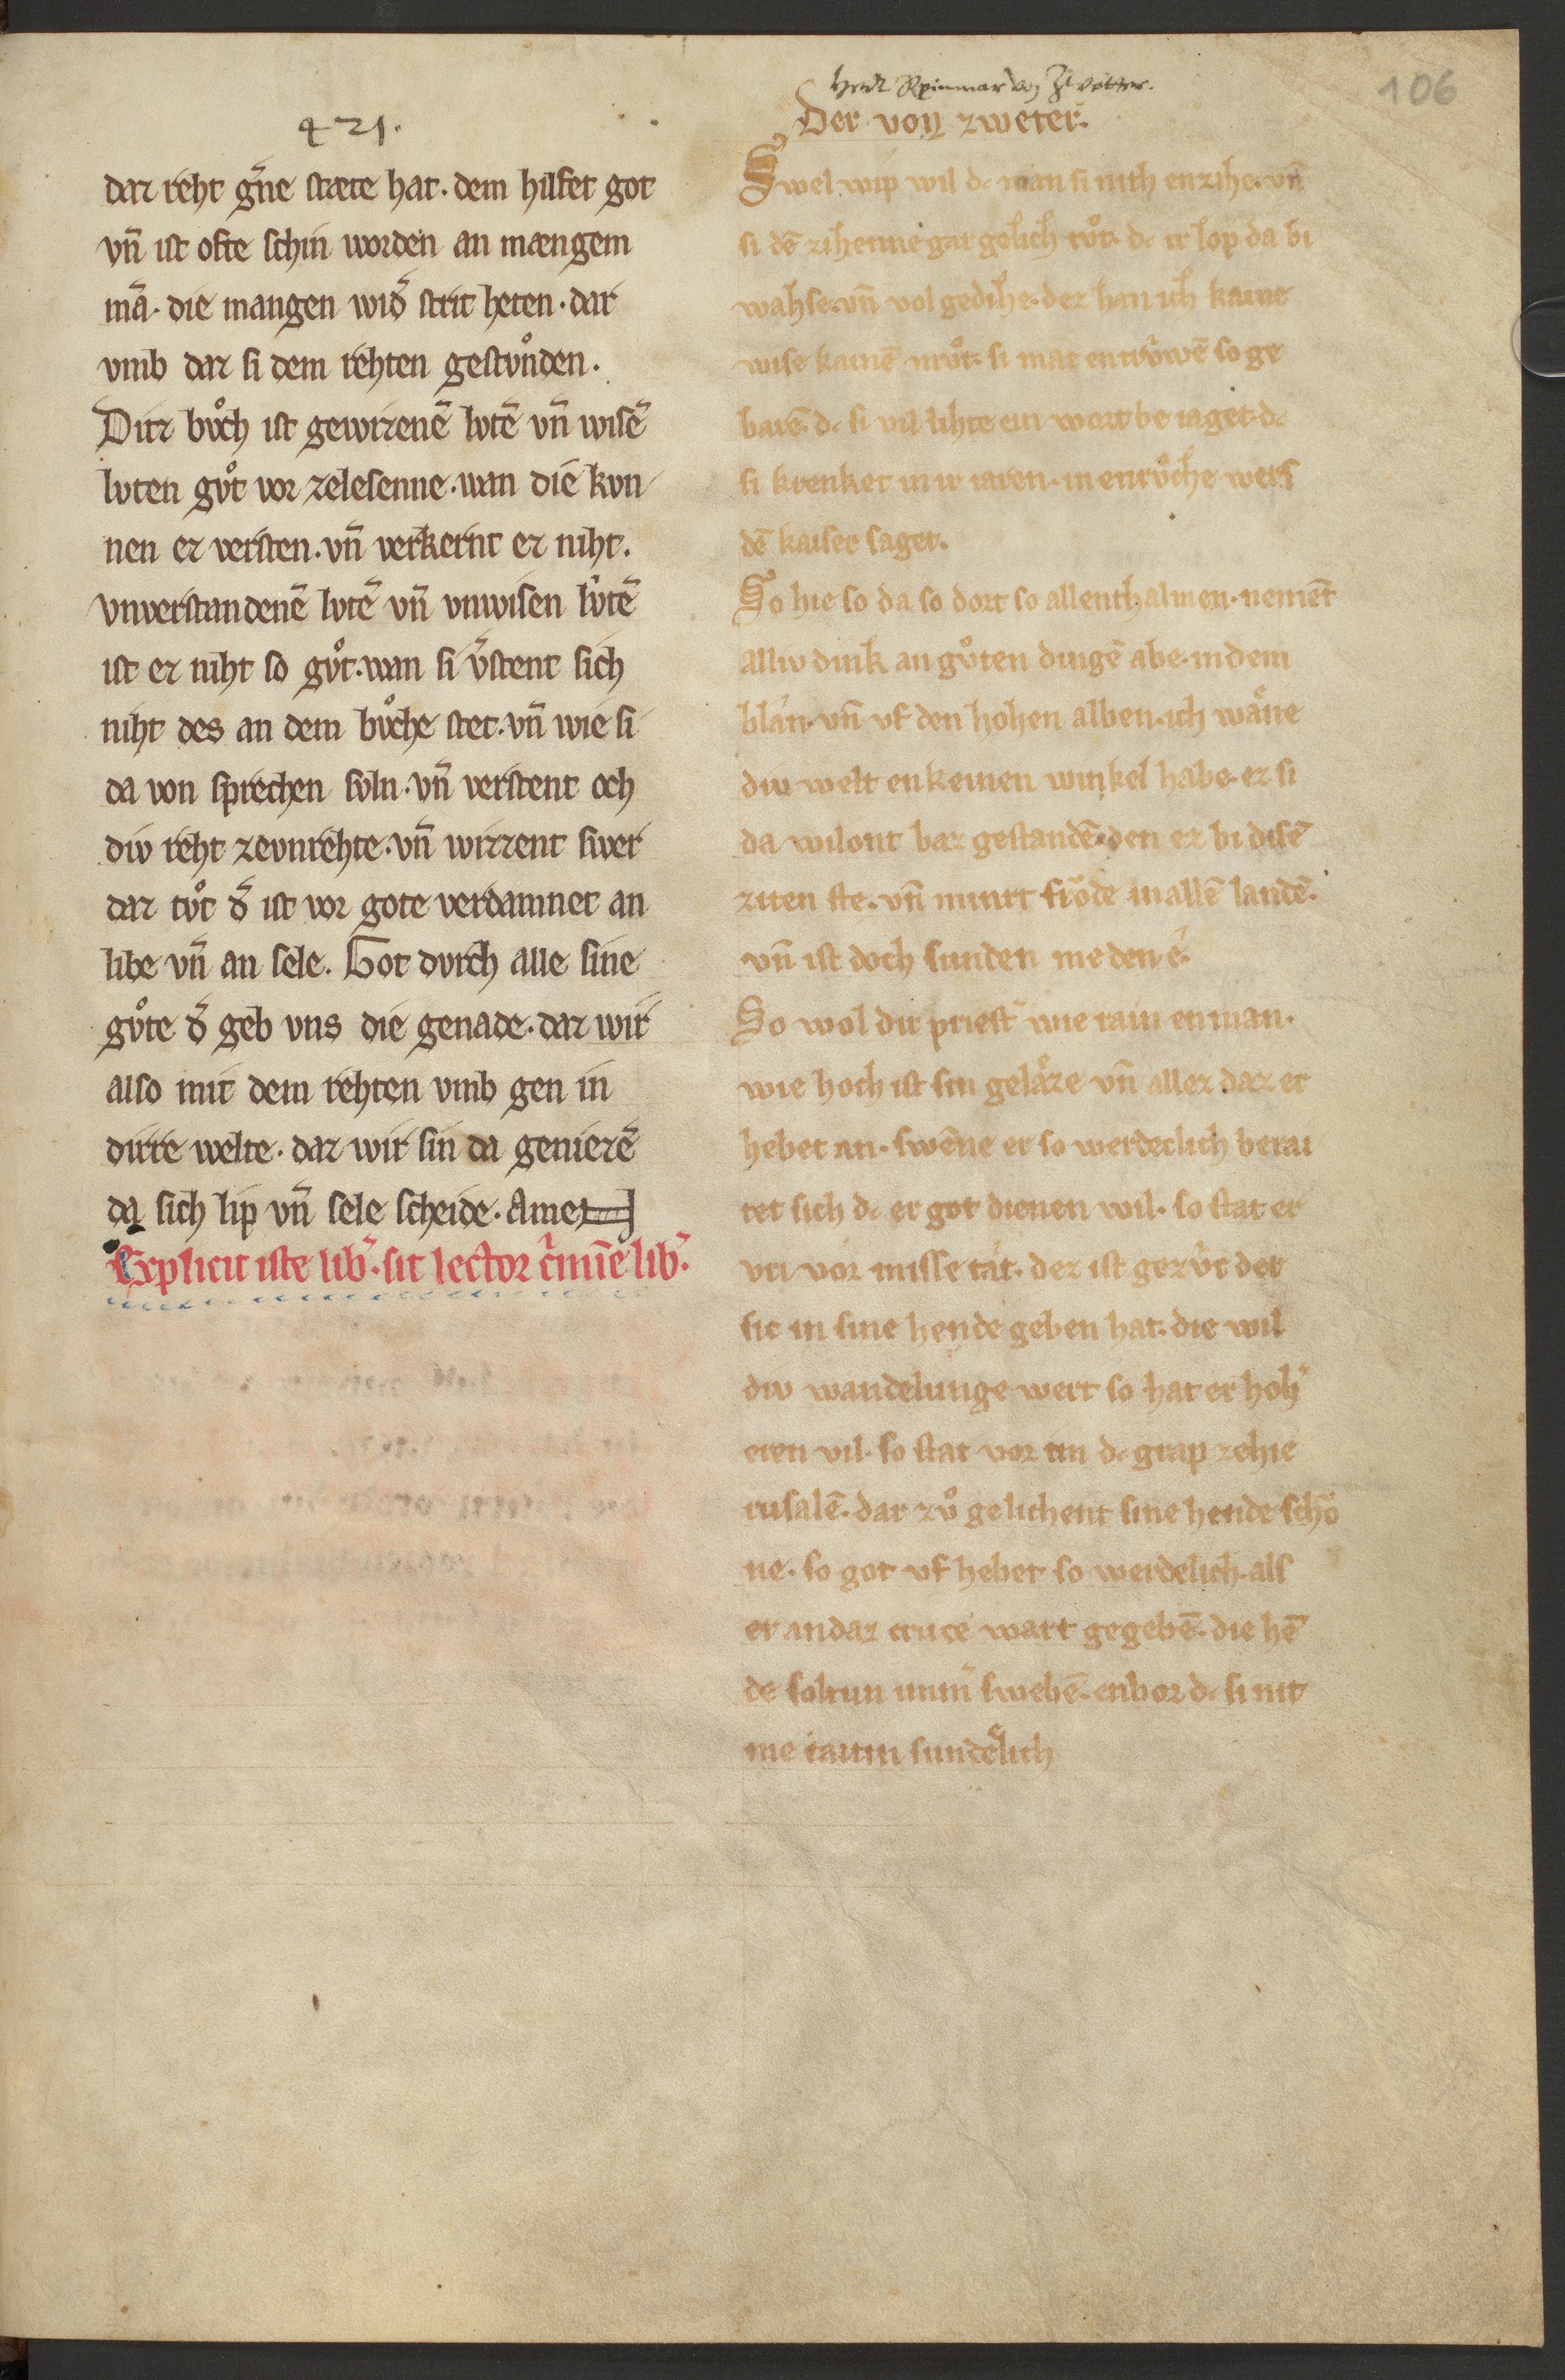 421.
daz reht g̃ne stæte hat. dem hilfet got
vn̄ ist ofte schin worden an mængem
mā. die mangen wid̃ strit heten. dar
vmb daz si dem rehten gestvͦnden.
Ditz bvͦch ist gewizenē lvtē vn̄ wisē
lvten gvͦt vor zelesenne. wan die kvn
nen ez versten. vn̄ verkernt ez niht.
vnverstandenē lvtē vn̄ vnwisen lv̂tē
ist ez niht so gvͦt. wan si v̄stent sich
niht des an dem bvͦche stet. vn̄ wie si
da von sprechen svln. vn̄ verstent och
div reht zevnrehte. vn̄ wizzent swer
daz tvͦt d̃ ist vor gote verdamnet an
libe vn̄ an sele. Got dvrch alle sine
gvͦte d̃ geb vns die genade. daz wir
also mit dem rehten vmb gen in
dirre welte. daz wir sin da geniezē
da sich lip vn̄ sele scheide. Amen
Explicit iste lib̃. sit lector c̃mīe lib̃.
106
Herr Reinmar von Zweter.
Der von zweter.
Swel wip wil dc man si nith enzihe. vn̄
si dē zihenne gar gelich tvͦt. dc ir lop da bi
wahse. vn̄ vol gedihe. dez han ich kaine
wise kainē mvͦt. si mac entrv̂wē so ge
barē. dc si vil lihte ein wort be iaget. dc
si krenket in ir iaren. in enrvͦche wers
dē kaiser saget.
So hie so da so dort so allenthalmen. nemēt
alliv dink an gvͦten dingē abe. in dem
blân. vn̄ vf den hohen alben. ich wåne
div welt enkeinen winkel habe. ez si
da wilont baz gestandē. den ez bi disē
ziten ste. vn̄ minrt frôde in allē landē.
vn̄ ist doch sunden me den ê.
So wol dir priest̃ wie rain en man.
wie hoch ist sin gelåze vn̄ allez daz er
hebet an. swēne er so werdeclich berai
tet sich dc er got dienen wil. so stat er
vri vor misse tât. dez ist gezv̂c der
sic in sine hende geben hat. die wil
div wandelunge wert so hat er hoh̃
eren vil. so stat vor im dc grap zehie
rusalē. dar zvͦ gelichent sine hende schô
ne. so got vf hebet so werdelich. als
er an daz cruce wart gegebē. die hē
de soltun nim̃ swebē. enbor dc si nit
me taten sundelich